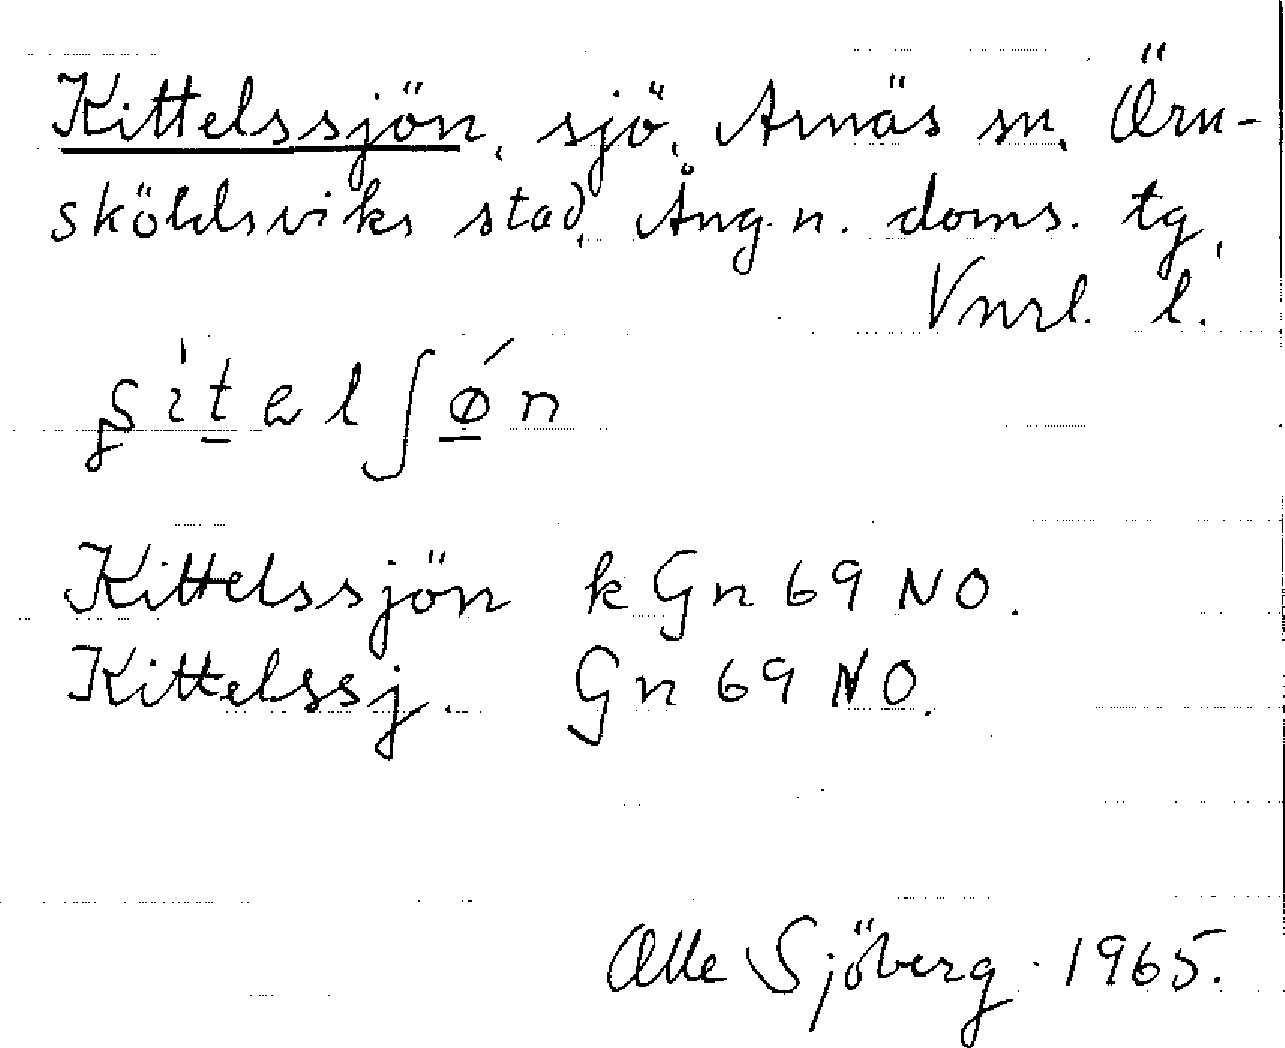 Kittelssjön, sjö, Arnäs sn, Örn-
sköldsviks stad, Ång. n. doms. tg,
Vnrl. l.
Kittelssjön k Gn 69 NO.
Kittelssj. Gn 69 NO.
Olle Sjöberg. 1965.